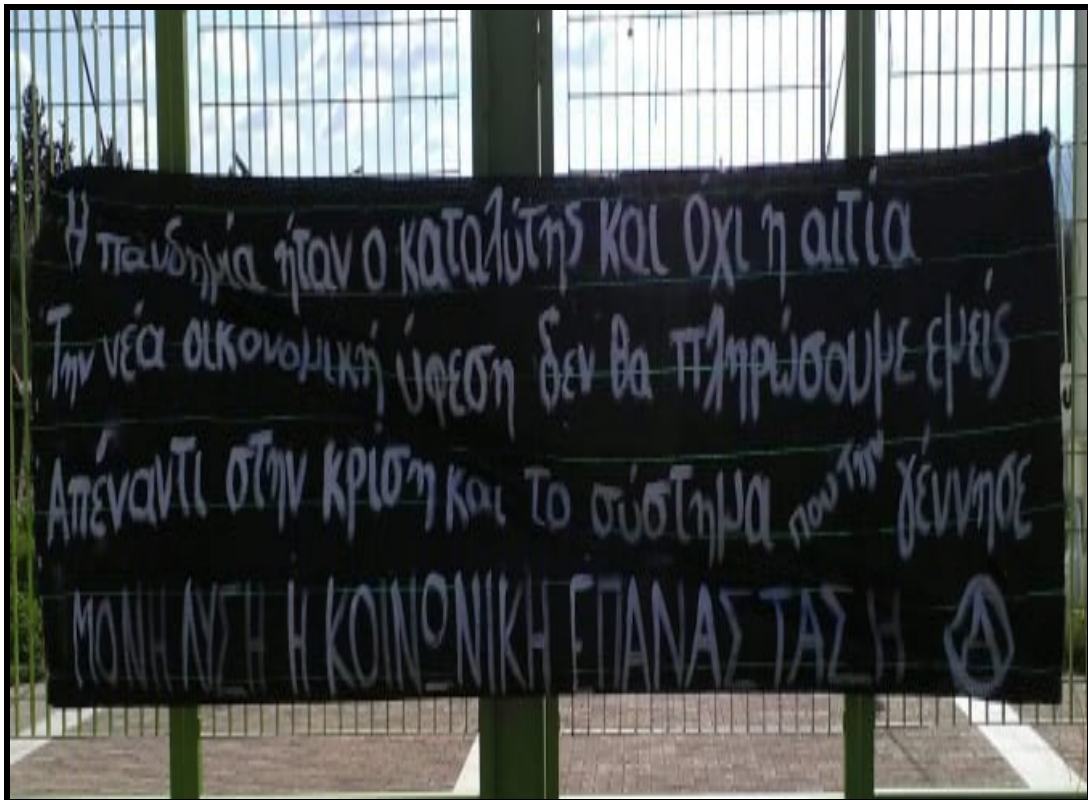 Η πανδημία ήταν ο καταλύτης και όχι η αιτία
Την νέα οικονομική ύφεση δεν θα πληρώσουμε εμείς
Απέναντι στην κρίση και το σύστημα που την γέννησε
ΜΟΝΗ ΛΥΣΗ Η ΚΟΙΝΩΝΙΚΗ ΕΠΑΝΑΣΤΑΣΗ Ⓐ